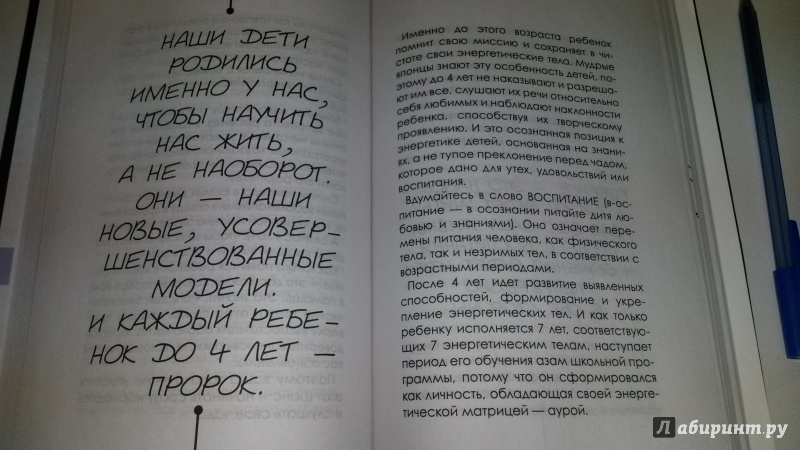 НАШИ ДЕТИ
РОДИЛИСЬ
ИМЕННО У НАС,
ЧТОБЫ НАУЧИТЬ
НАС ЖИТЬ,
А НЕ НАОБОРОТ.
ОНИ — НАШИ
НОВЫЕ, УСОВЕР-
ШЕНСТВОВАННЫЕ
МОДЕЛИ.
И КАЖДЫЙ РЕБЕ-
НОК ДО 4 ЛЕТ —
ПРОРОК.
Именно до этого возраста ребенок
помнит свою миссию и сохраняет в чи-
стоте свои энергетические тела. Мудрые
японцы знают эту особенность детей, по-
этому до 4 лет не наказывают и разреша-
ют им все, слушают их речи относительно
себя любимых и наблюдают наклонности
ребенка, способствуя их творческому
проявлению. И это осознанная позиция к
энергетике детей, основанная на знани-
ях, а не тупое преклонение перед чадом,
которое дано для утех, удовольствий или
воспитания.
Вдумайтесь в слово ВОСПИТАНИЕ (в-ос-
питание — в осознании питайте дитя лю-
бовью и знаниями). Оно означает пере-
мены питания человека, как физического
тела, так и незримых тел, в соответствии с
возрастными периодами.
После 4 лет идет развитие выявленных
способностей, формирование и укре-
пление энергетических тел. И как только
ребенку исполняется 7 лет, соответствую-
щих 7 энергетическим телам, наступает
период его обучения азам школьной про-
граммы, потому что он сформировался
как личность, обладающая своей энерге-
тической матрицей — аурой.
Лабиринт.ру